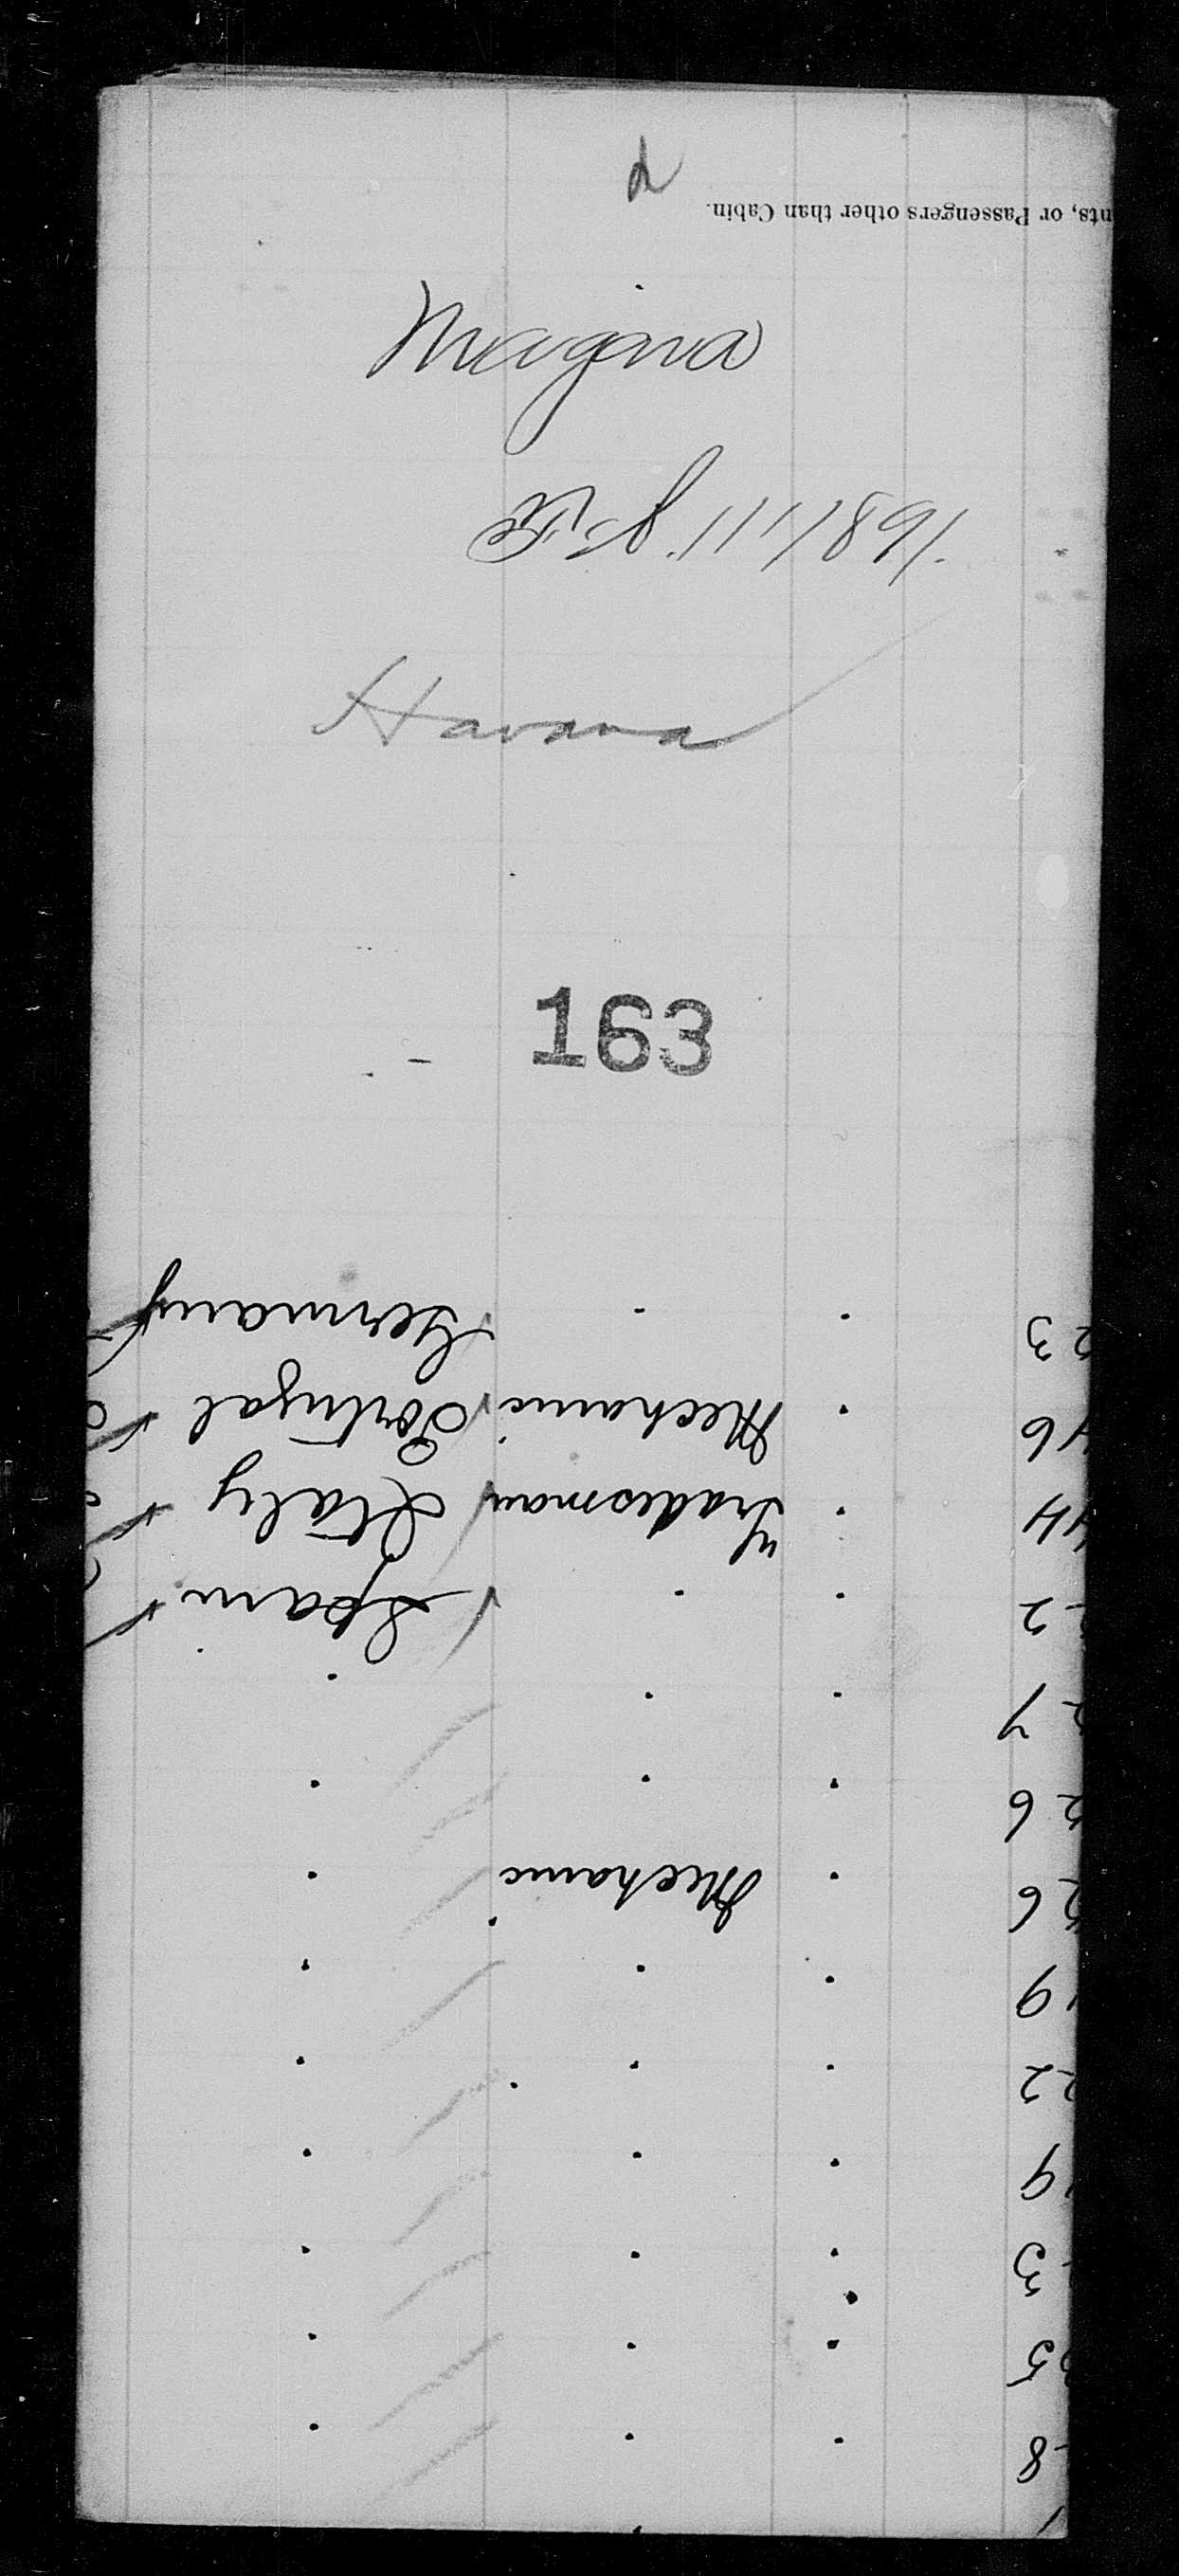 Niagara
Feb 11/1891
Havana
163
8
5
3
9
22
19
26 Mechanic
26
27
2 Spain
44 Tradesman Italy
46 Mechanic Portugal
23 Germany
nts, or Passengers other than Cabin.